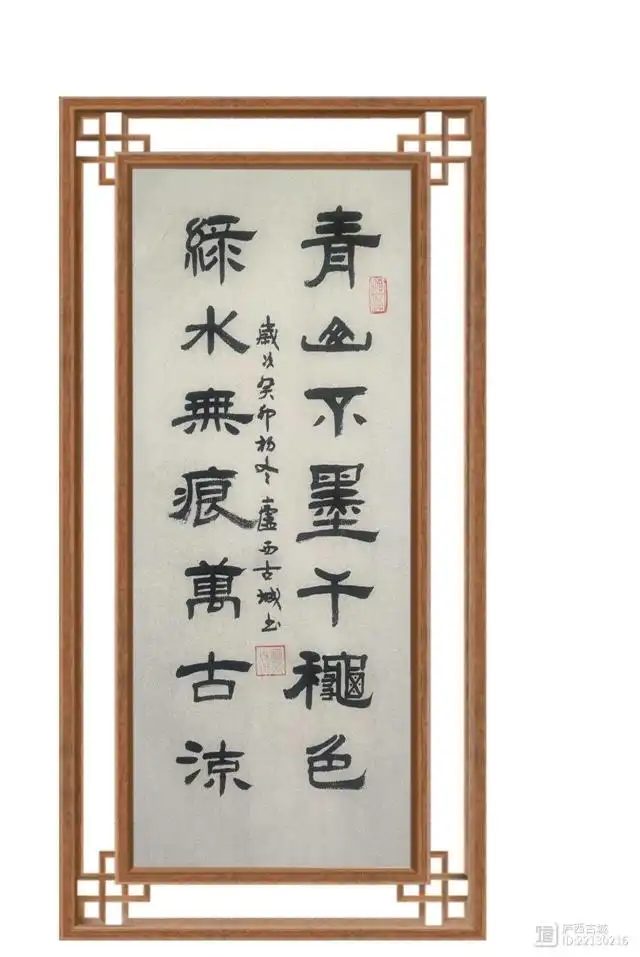 青山不墨千穐色
歲次癸卯初冬廬西古城书
綠水無痕萬古涼
庐西古城
ID:22130216